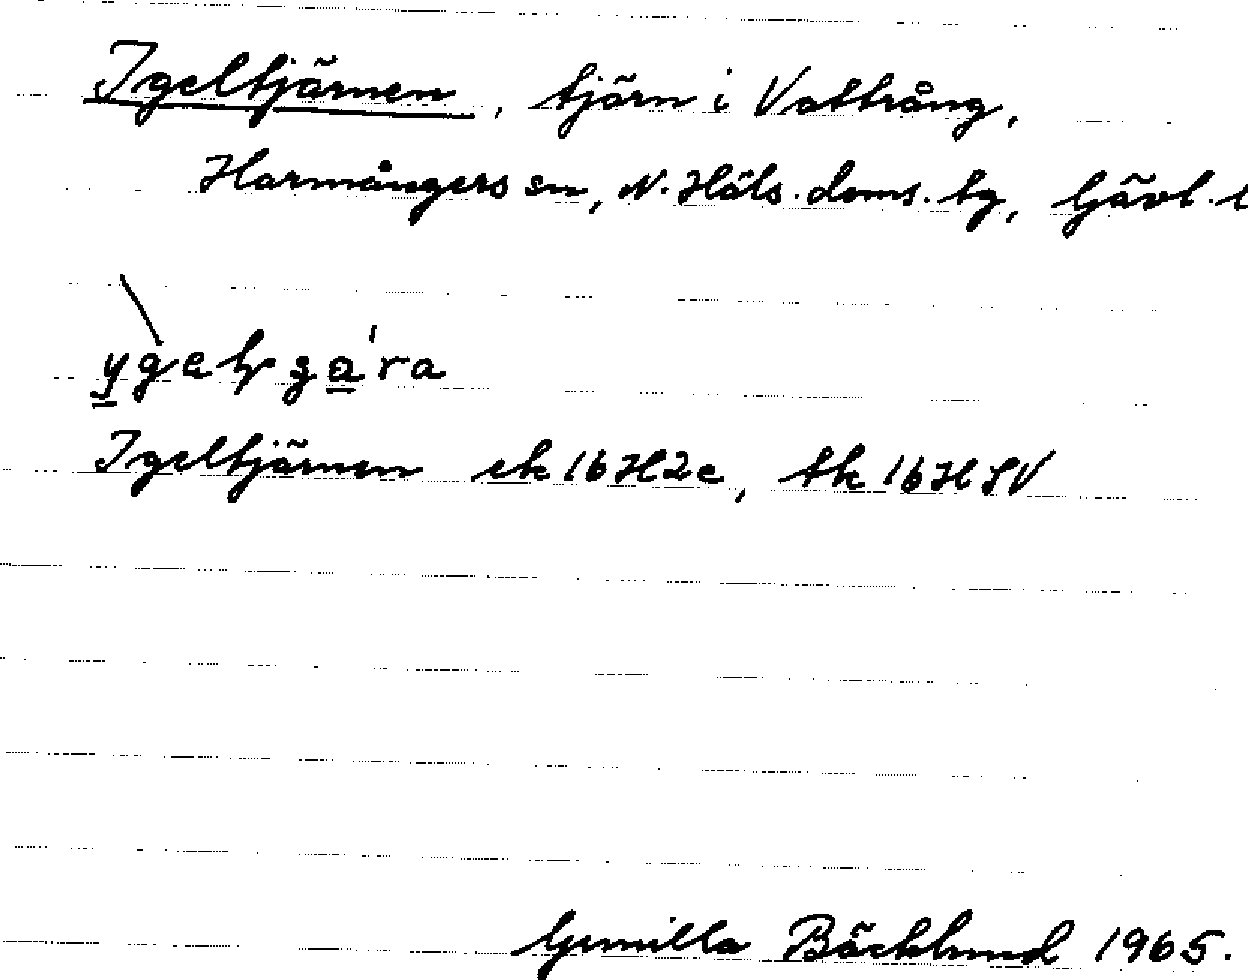 Igeltjärnen, tjärn i Vattrång,
Harmångers sn, N. Häls. doms. tg, Gävl. l
Igeltjärnen ek 16H2e, tk 16HSV
Gunilla Bäcklund 1965.